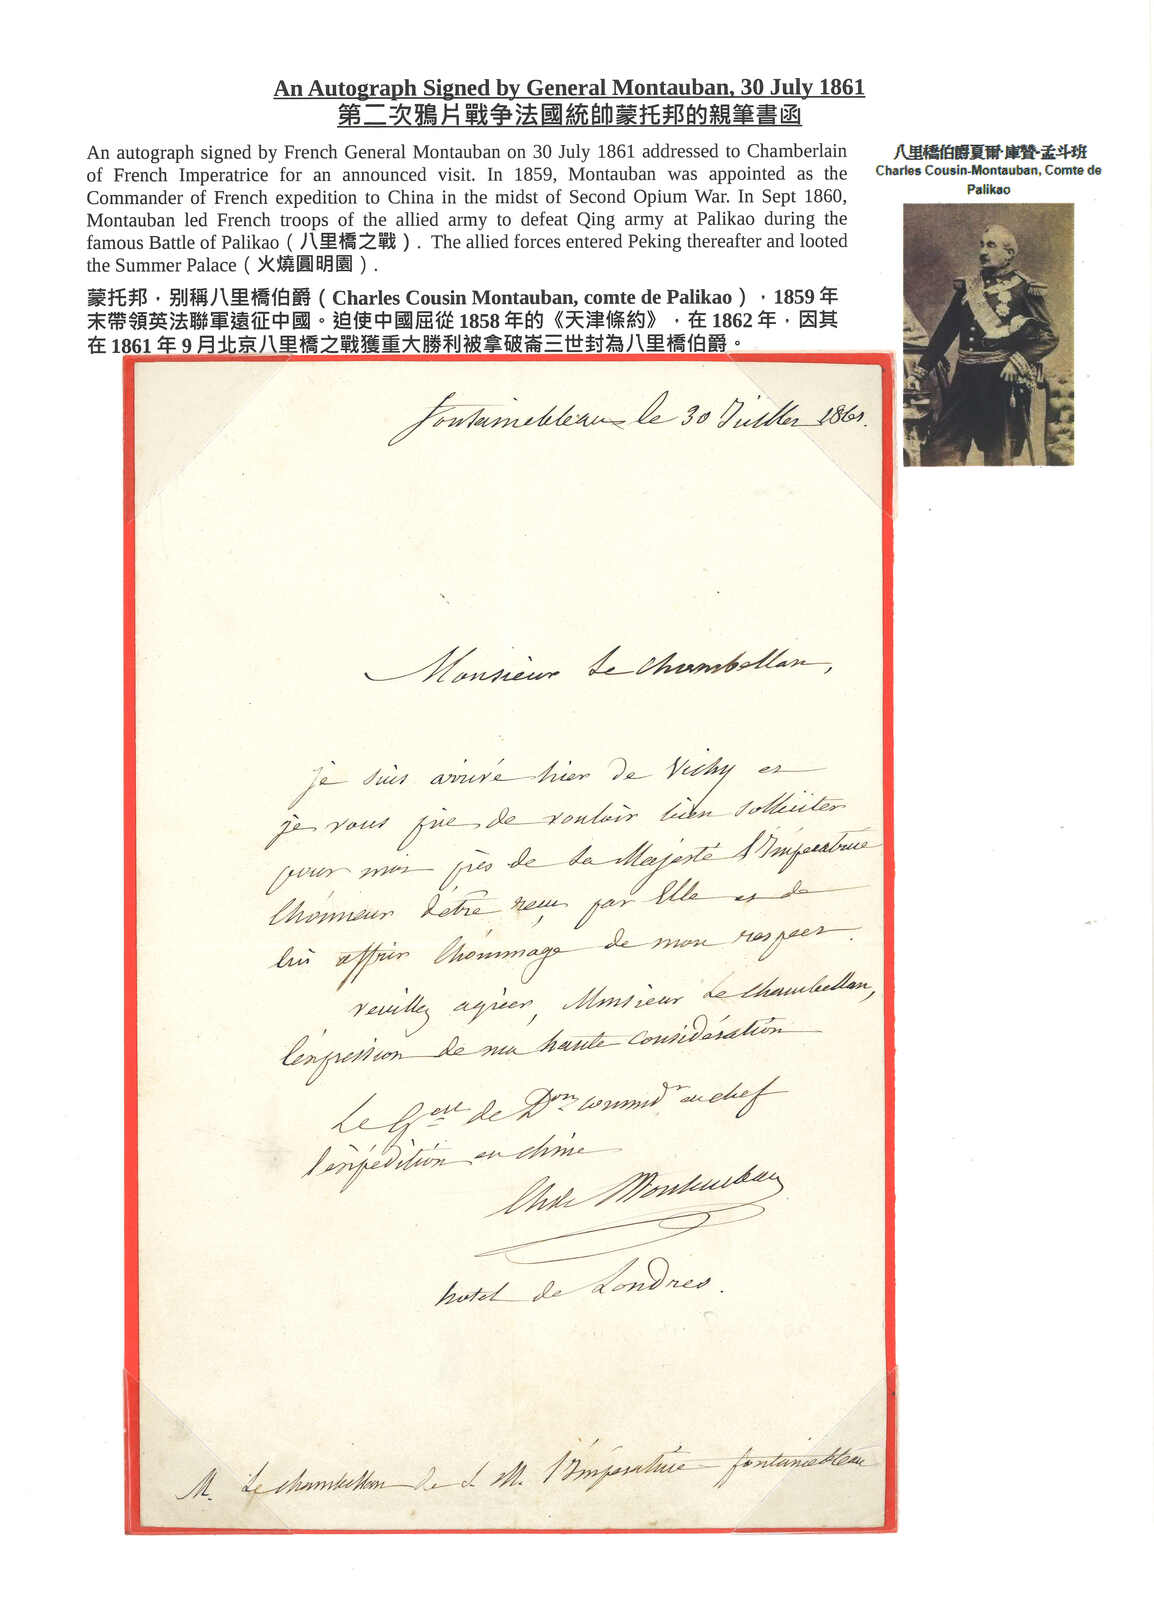 An Autograph Signed by General Montauban, 30 July 1861
第二次鴉片戰争法國統帥蒙托邦的親筆書函
An autograph signed by French General Montauban on 30 July 1861 addressed to Chamberlain
of French Imperatrice for an announced visit. In 1859, Montauban was appointed as the
Commander of French expedition to China in the midst of Second Opium War. In Sept 1860,
Montauban led French troops of the allied army to defeat Qing army at Palikao during the
famous Battle of Palikao（八里橋之戰）. The allied forces entered Peking thereafter and looted
the Summer Palace（火燒圓明園）.
蒙托邦，别稱八里橋伯爵（Charles Cousin Montauban, comte de Palikao），1859 年
末帶領英法聯軍遠征中國。迫使中國屈從 1858 年的《天津條約》，在 1862 年，因其
在 1861 年 9 月北京八里橋之戰獲重大勝利被拿破崙三世封為八里橋伯爵。
八里橋伯爵夏爾·庫贊·孟斗班
Charles Cousin-Montauban, Comte de
Palikao
Fontainebleau le 30 Juillet 1861.
Monsieur Le Chambellan,
je suis arrivé hier de Vichy et
je vous prie de vouloir bien solliciter
pour moi près de Sa Majesté l'Impératrice
l'honneur d'être reçu par Elle et de
lui offrir l'hommage de mon respect.
veuillez agréer, Monsieur Le Chambellan,
l'expression de ma haute considération
Le Gal de Don commdt en chef
l'expédition en chine
Montauban
hotel de Londres.
M. Le chambellan de S. M. l'Impératrice fontainebleau